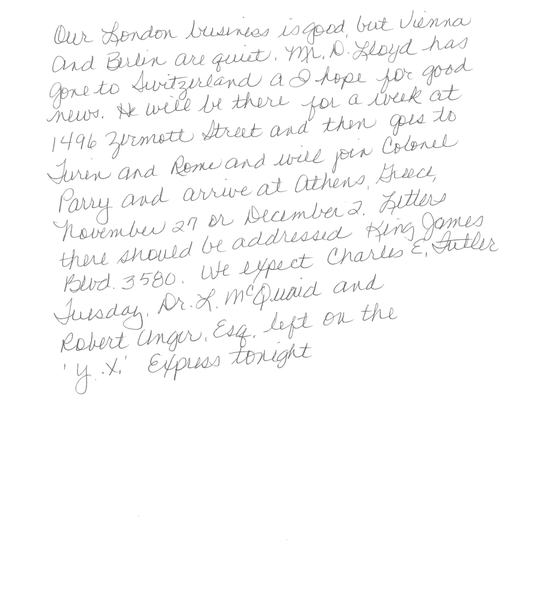 Our London business is good, but Vienna
and Berlin are quiet. Mr. D. Lloyd has
gone to Switzerland a I hope for good
news. He will be there for a week at
1496 Zermott Street and then goes to
Turin and Rome and will join Colonel
Parry and arrive at Athens, Greece,
November 27 or December 2. Letters
there should be addressed King James
Blvd. 3580. We expect Charles E. Fuller
Tuesday. Dr. L. McQuaid and
Robert Unger, Esq. left on the
'Y.X.' Express tonight